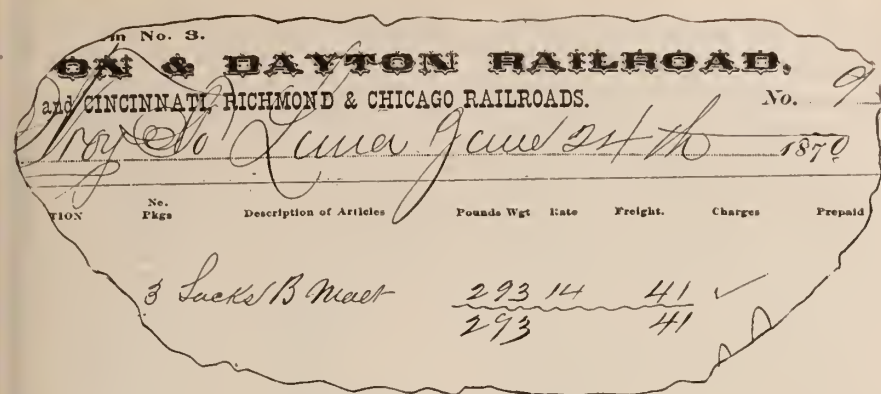 m No. 3.
ON & DAYTON RAILROAD,
and CINCINNATI, RICHMOND & CHICAGO RAILROADS. No. 9
Troy To Lima June 24th 1870
TION No. Pkgs Description of Articles Pounds Wgt Rate Freight. Charges Prepaid
3 Sacks B Malt 293 14 41 ✓
293 41